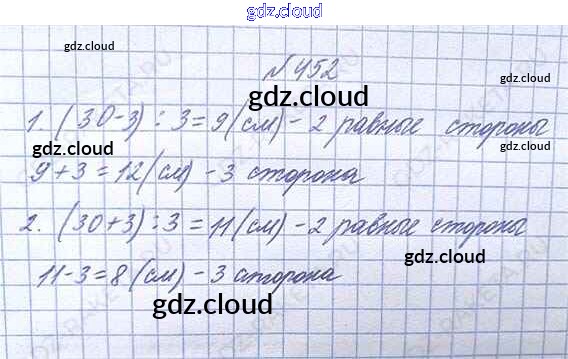 gdz.cloud
gdz.cloud
№ 452
gdz.cloud
gdz.cloud
1. (30-3) : 3 = 9 (см) - 2 равные стороны
gdz.cloud
gdz.cloud
9 + 3 = 12 (см) - 3 сторона
gdz.cloud
2. (30+3) : 3 = 11 (см) - 2 равные стороны
gdz.cloud
11-3=8 (см) - 3 сторона
gdz.cloud